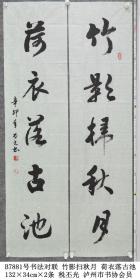 竹影掃秋月
荷衣落古池
辛卯年
B7881号书法对联 竹影扫秋月 荷衣落古池
132×34cm×2条 税丕光 泸州市书协会员